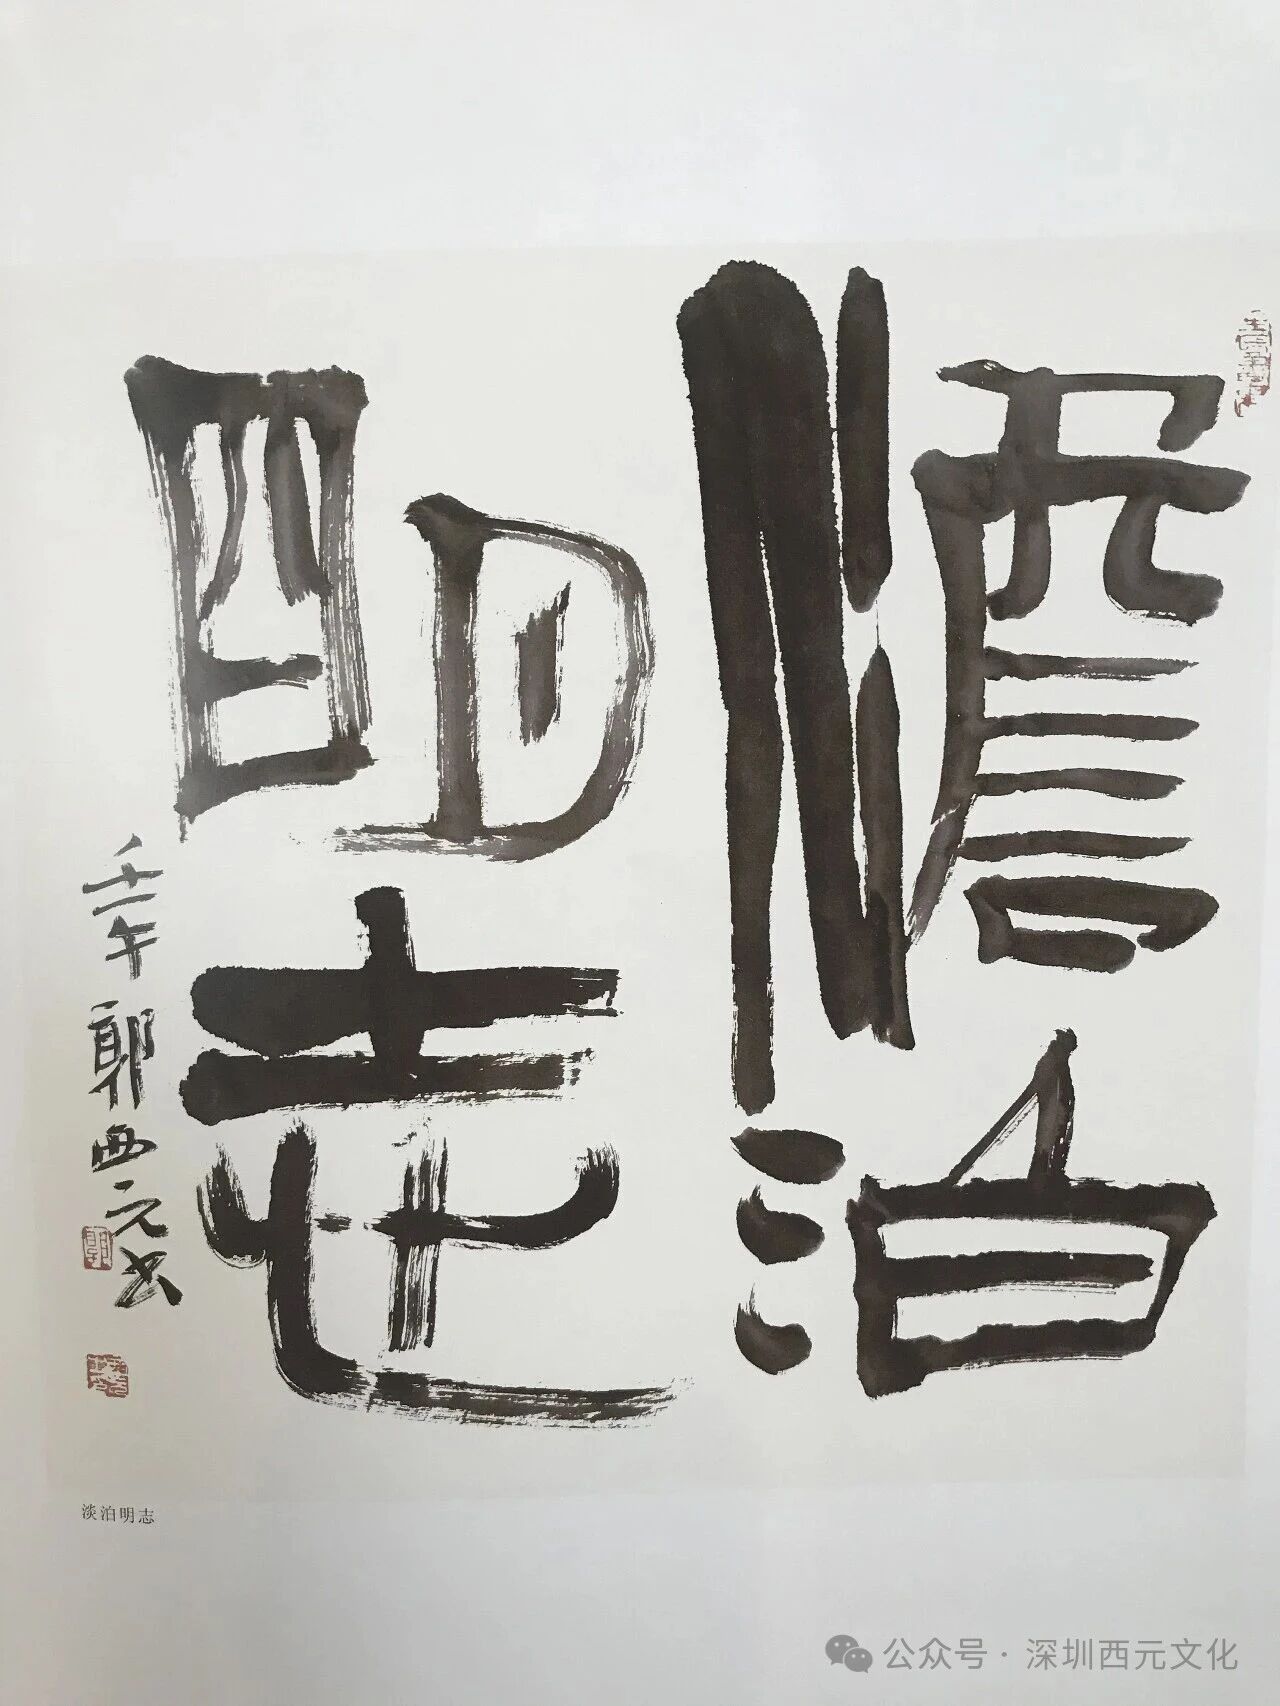 澹泊
明志
壬午郭西元书
淡泊明志
公众号·深圳西元文化